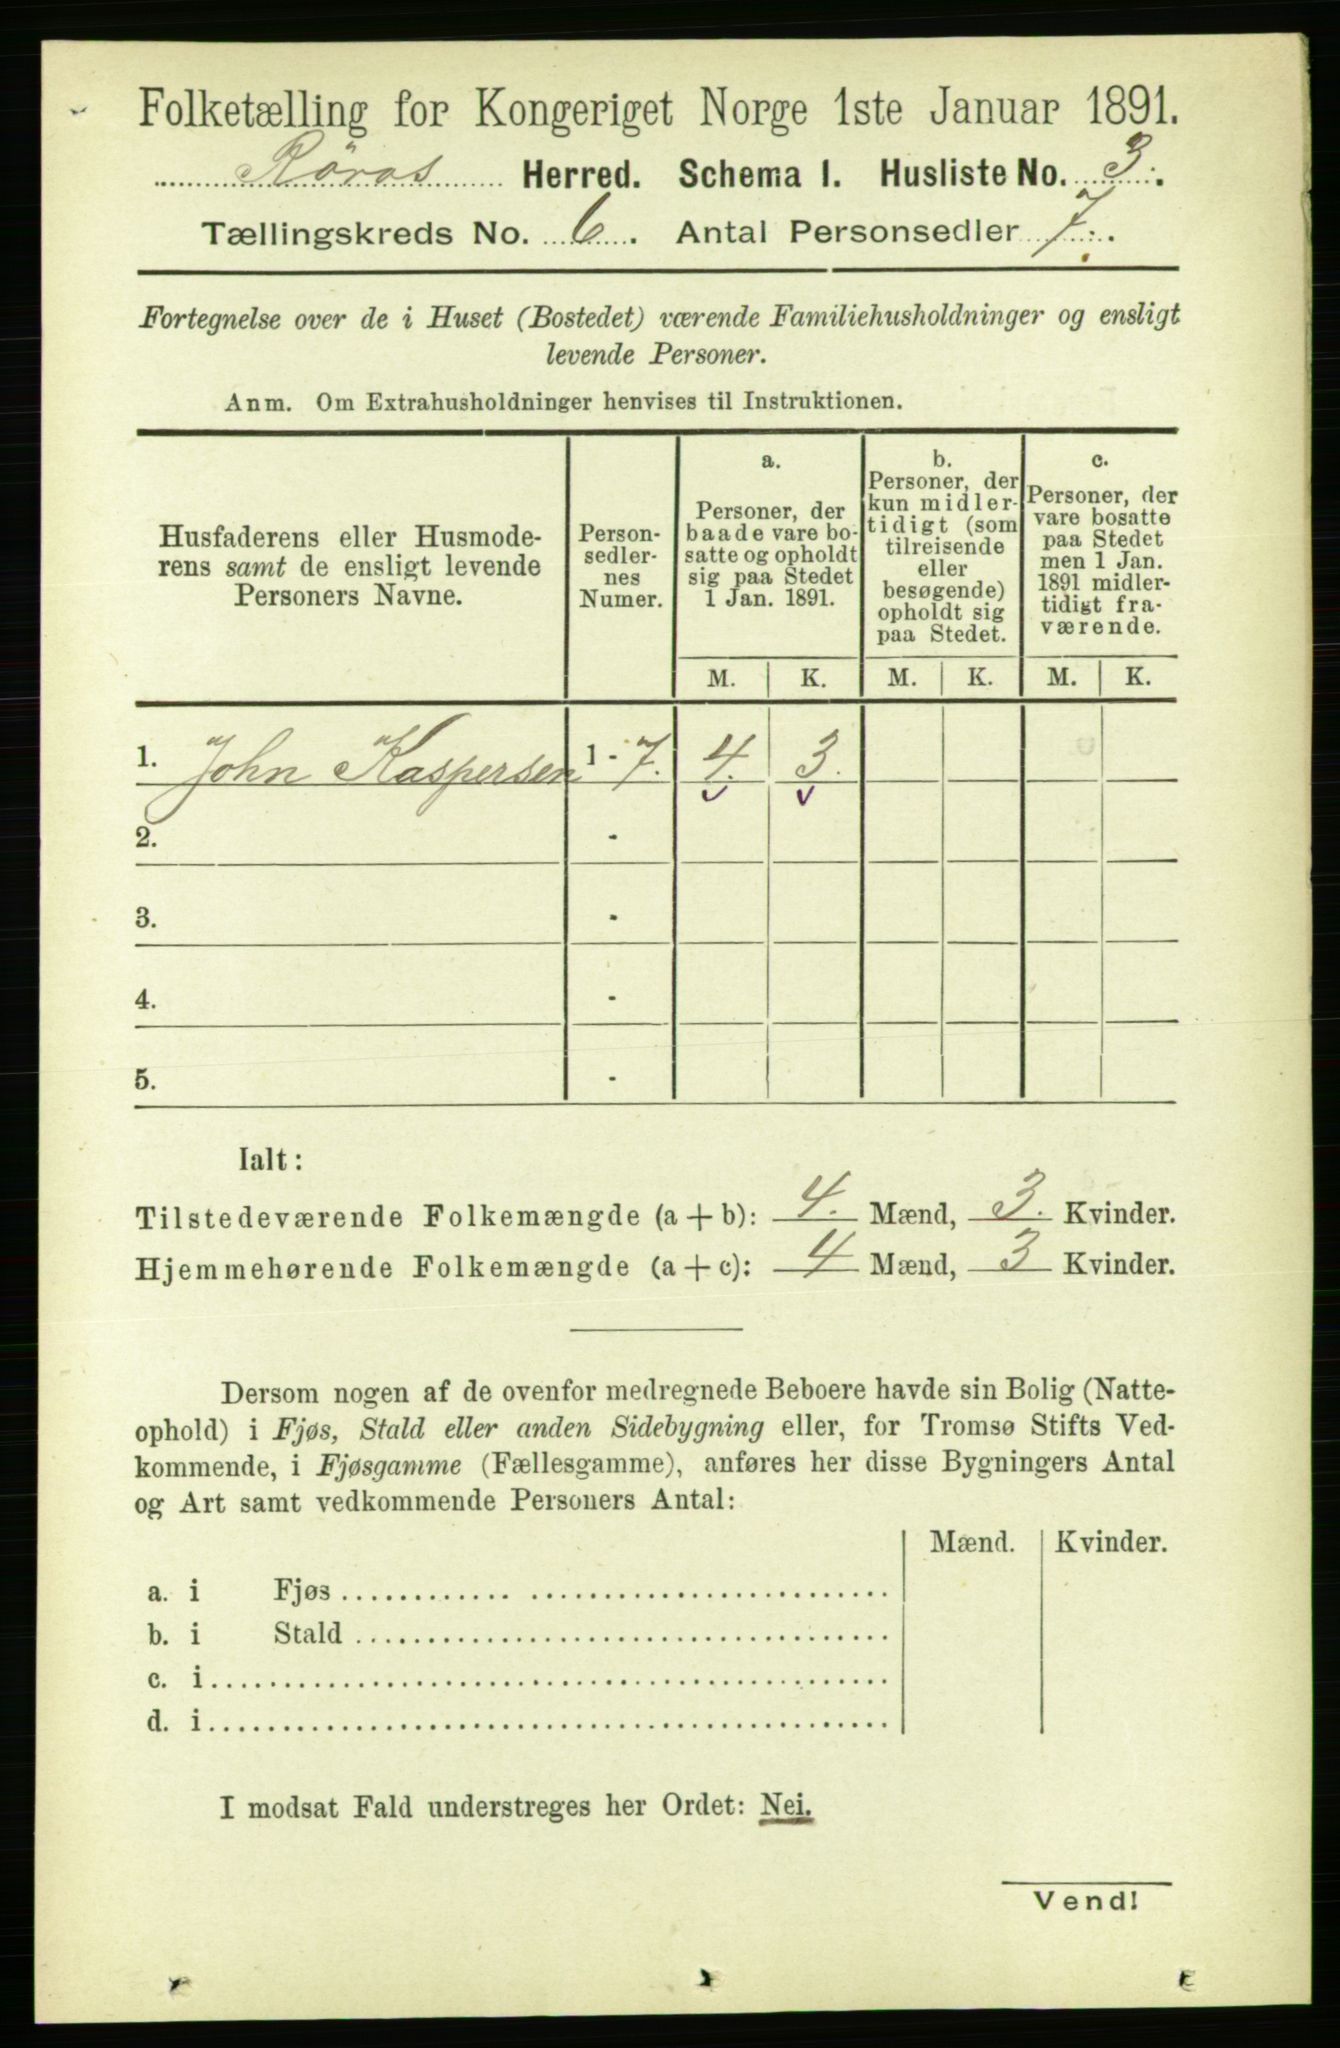 Folketælling for Kongeriget Norge 1ste Januar 1891.
Röros Herred. Schema 1. Husliste No. 3.
Tællingskreds No. 6. Antal Personsedler 7.
Fortegnelse over de i Huset (Bostedet) værende Familiehusholdninger og ensligt
levende Personer.
Anm. Om Extrahusholdninger henvises til Instruktionen.
Husfaderens eller Husmode-
rens samt de ensligt levende
Personers Navne.
Person-
sedler-
nes
Numer.
a.
Personer, der
baade vare bo-
satte og opholdt
sig paa Stedet
1 Jan. 1891.
b.
Personer, der
kun midler-
tidigt (som
tilreisende
eller
besøgende)
opholdt sig
paa Stedet.
c.
Personer, der
vare bosatte
paa Stedet
men 1 Jan.
1891 midler-
tidigt fra-
værende.
M. K. M. K. M. K.
1. John Kaspersen 1 - 7. 4. 3.
2. -
3. -
4. -
5. -
Ialt:
Tilstedeværende Folkemængde (a + b): 4. Mænd, 3. Kvinder.
Hjemmehørende Folkemængde (a + c): 4 Mænd, 3 Kvinder.
Dersom nogen af de ovenfor medregnede Beboere havde sin Bolig (Natte-
ophold) i Fjøs, Stald eller anden Sidebygning eller, for Tromsø Stifts Ved-
kommende, i Fjøsgamme (Fællesgamme), anføres her disse Bygningers Antal
og Art samt vedkommende Personers Antal:
Mænd. Kvinder.
a. i Fjøs
b. i Stald
c. i
d. i
I modsat Fald understreges her Ordet: Nei.
Vend!